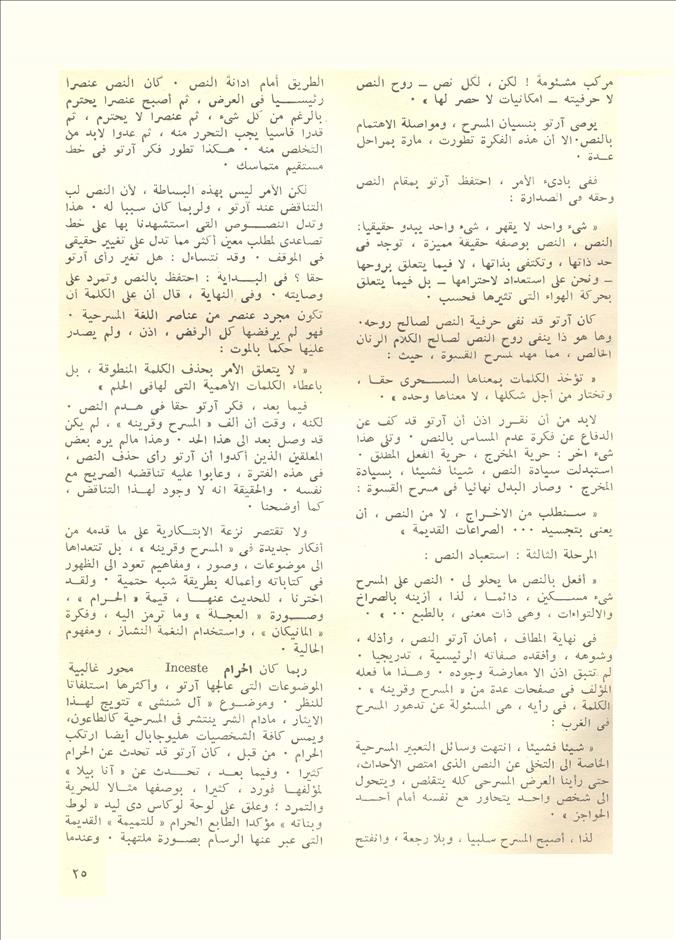 مركب مشئومة ! لكن ، لكل نص ــ روح النص
لا حرفيته ــ امكانيات لا حصر لها » ٠
يوصى آرتو بنسيان المسرح ، ومواصلة الاهتمام
بالنص٠ الا أن هذه الفكرة تطورت ، مارة بمراحل
عدة ٠
ففى بادىء الأمر ، احتفظ آرتو بمقام النص
وحقه فى الصدارة :
« شىء واحد لا يقهر ، شىء واحد يبدو حقيقيا:
النص ، النص بوصفه حقيقة مميزة ، توجد فى
حد ذاتها ، وتكتفى بذاتها ، لا فيما يتعلق بروحها
ــ ونحن على استعداد لاحترامها ــ بل فيما يتعلق
بحركة الهواء التى تثيرها فحسب ٠
كان آرتو قد نفى حرفية النص لصالح روحه٠
وها هو ذا ينفى روح النص لصالح الكلام الرنان
الخالص ، مما مهد لمسرح القسوة ، حيث :
« تؤخذ الكلمات بمعناها السحرى حقا ،
وتختار من أجل شكلها ، لا معناها وحده » ٠
لابد من أن نقرر اذن أن آرتو قد كف عن
الدفاع عن فكرة عدم المساس بالنص ٠ وتلى هذا
شىء آخر : حرية المخرج ، حرية الفعل المطلق ٠
استبدلت سيادة النص ، شيئا فشيئا ، بسيادة
المخرج ٠ وصار البدل نهائيا فى مسرح القسوة :
« سنطلب من الاخراج ، لا من النص ، أن
يعنى بتجسيد ٠٠٠ الصراعات القديمة »
المرحلة الثالثة : استعباد النص :
« أفعل بالنص ما يحلو لى ٠ النص على المسرح
شىء مسكين ، دائما ، لذا ، أزينه بالصراخ
والالتواءات ، وهى ذات معنى ، بالطبع ٠٠ » ٠
فى نهاية المطاف ، أهان آرتو النص ، وأذله ،
وشوهه ، وأفقده صفاته الرئيسية ، تدريجيا ٠
لم تتبق اذن الا معارضة وجوده ٠ وهذا ما فعله
المؤلف فى صفحات عدة من « المسرح وقرينه » ٠
الكلمة ، فى رأيه ، هى المسئولة عن تدهور المسرح
فى الغرب :
« شيئا فشيئا ، انتهت وسائل التعبير المسرحية
الخاصة الى التخلى عن النص الذى امتص الأحداث،
حتى رأينا العرض المسرحى كله يتقلص ، ويتحول
الى شخص واحد يتحاور مع نفسه أمام أحد
الحواجز » ٠
لذا ، أصبح المسرح سلبيا ، وبلا رجعة ، وانفتح
الطريق أمام ادانة النص ٠ كان النص عنصرا
رئيسيا فى العرض ، ثم أصبح عنصرا يحترم
بالرغم من كل شىء ، ثم عنصرا لا يحترم ، ثم
قدرا قاسيا يجب التحرر منه ، ثم عدوا لابد من
التخلص منه ٠ هكذا تطور فكر آرتو فى خط
مستقيم متماسك ٠
لكن الأمر ليس بهذه البساطة ، لأن النص لب
التناقض عند آرتو ، ولربما كان سببا له ٠ هذا
وتدل النصوص التى استشهدنا بها على خط
تصاعدى لمطلب معين أكثر مما تدل على تغيير حقيقى
فى الموقف ٠ وقد نتساءل : هل تغير رأى آرتو
حقا ؟ فى البداية : احتفظ بالنص وتمرد على
وصايته ٠ وفى النهاية ، قال أن على الكلمة أن
تكون مجرد عنصر من عناصر اللغة المسرحية ٠
فهو لم يرفضها كل الرفض ، اذن ، ولم يصدر
عليها حكما بالموت :
« لا يتعلق الأمر بحذف الكلمة المنطوقة ، بل
باعطاء الكلمات الأهمية التى لهافى الحلم »
فيما بعد ، فكر آرتو حقا فى هدم النص ٠
لكنه ، وقت أن ألف « المسرح وقرينه » ، لم يكن
قد وصل بعد الى هذا الحد ٠ وهذا مالم يره بعض
المعلقين الذين أكدوا أن آرتو رأى حذف النص ،
فى هذه الفترة ، وعابوا عليه تناقضه الصريح مع
نفسه ٠ والحقيقة انه لا وجود لهذا التناقض ،
كما أوضحنا ٠
ولا تقتصر نزعة الابتكارية على ما قدمه من
أفكار جديدة فى « المسرح وقرينه » ، بل تتعداها
الى موضوعات ، وصور ، ومفاهيم تعود الى الظهور
فى كتاباته وأعماله بطريقة شبه حتمية ٠ ولقد
اخترنا ، للحديث عنها ، قيمة « الحرام » ،
وصورة « العجلة » وما ترمز اليه ، وفكرة
« المانيكان » ، واستخدام النغمة النشاز ، ومفهوم
الحالية ٠
ربما كان الحرام Inceste محور غالبية
الموضوعات التى عالجها آرتو ، وأكثرها استلفاتا
للنظر ٠ وموضوع « آل شنشى » تتويج لهذا
الايثار ، مادام الشر ينتشر فى المسرحية كالطاعون،
ويمس كافة الشخصيات هليوجابال أيضا ارتكب
الحرام ٠ من قبل ، كان آرتو قد تحدث عن الحرام
كثيرا ٠ وفيما بعد ، تحدث عن « آنا بيلا »
لمؤلفها فورد ، كثيرا ، بوصفها مثالا للحرية
والتمرد ؛ وعلق على لوحة لوكاس دى ليد « لوط
وبناته » مؤكدا الطابع الحرام « للتميمة » القديمة
التى عبر عنها الرسام بصورة ملتهبة ٠ وعندما
٢٥